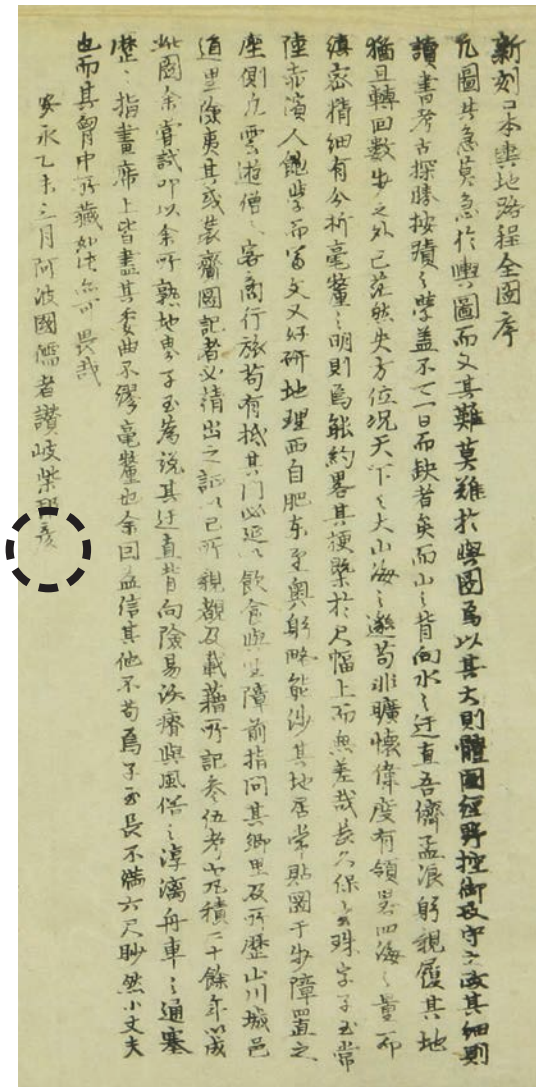 新刻日本輿地路程全圖序
凡圖共急莫急於輿圖而又其難莫難於輿圖焉以其大則體國經野控御攻守之政其細則
讀書考古探勝按蹟之學蓋不可一日而缺者矣而山之背向水之迂直吾儕孟浪躬親履其地
猶且轉回數步之外已茫然失方位況天下之大山海之邈苟非曠懷偉度有領畧四海之量而
縝密精細有分析毫釐之明則烏能約畧其梗槩於尺幅上而無差哉長久保玄珠字子玉常
陸赤濱人飽學而富文又好研地理西自肥东至奥躬略能涉其地居常貼圖于步障置之
座側凡雲遊僧之客商行旅苟有抵其門必延以飲食與坐障前指問其鄉里及所歷山川城邑
道里險夷其或裝齎圖記者必請出之証以己所親覩及載藉所記叅伍考定凡積二十餘年以成
此圖余嘗試叩以余所熟地畧子玉為說其迂直背向險易
歷之指畫席上皆盡其委曲不繆毫釐也余回益信其他不苟焉子玉長不滿六尺眇然小丈夫
也而其胷中所藏如此亦可畏哉
安永乙未三月阿波國儒者讃岐柴邦彥